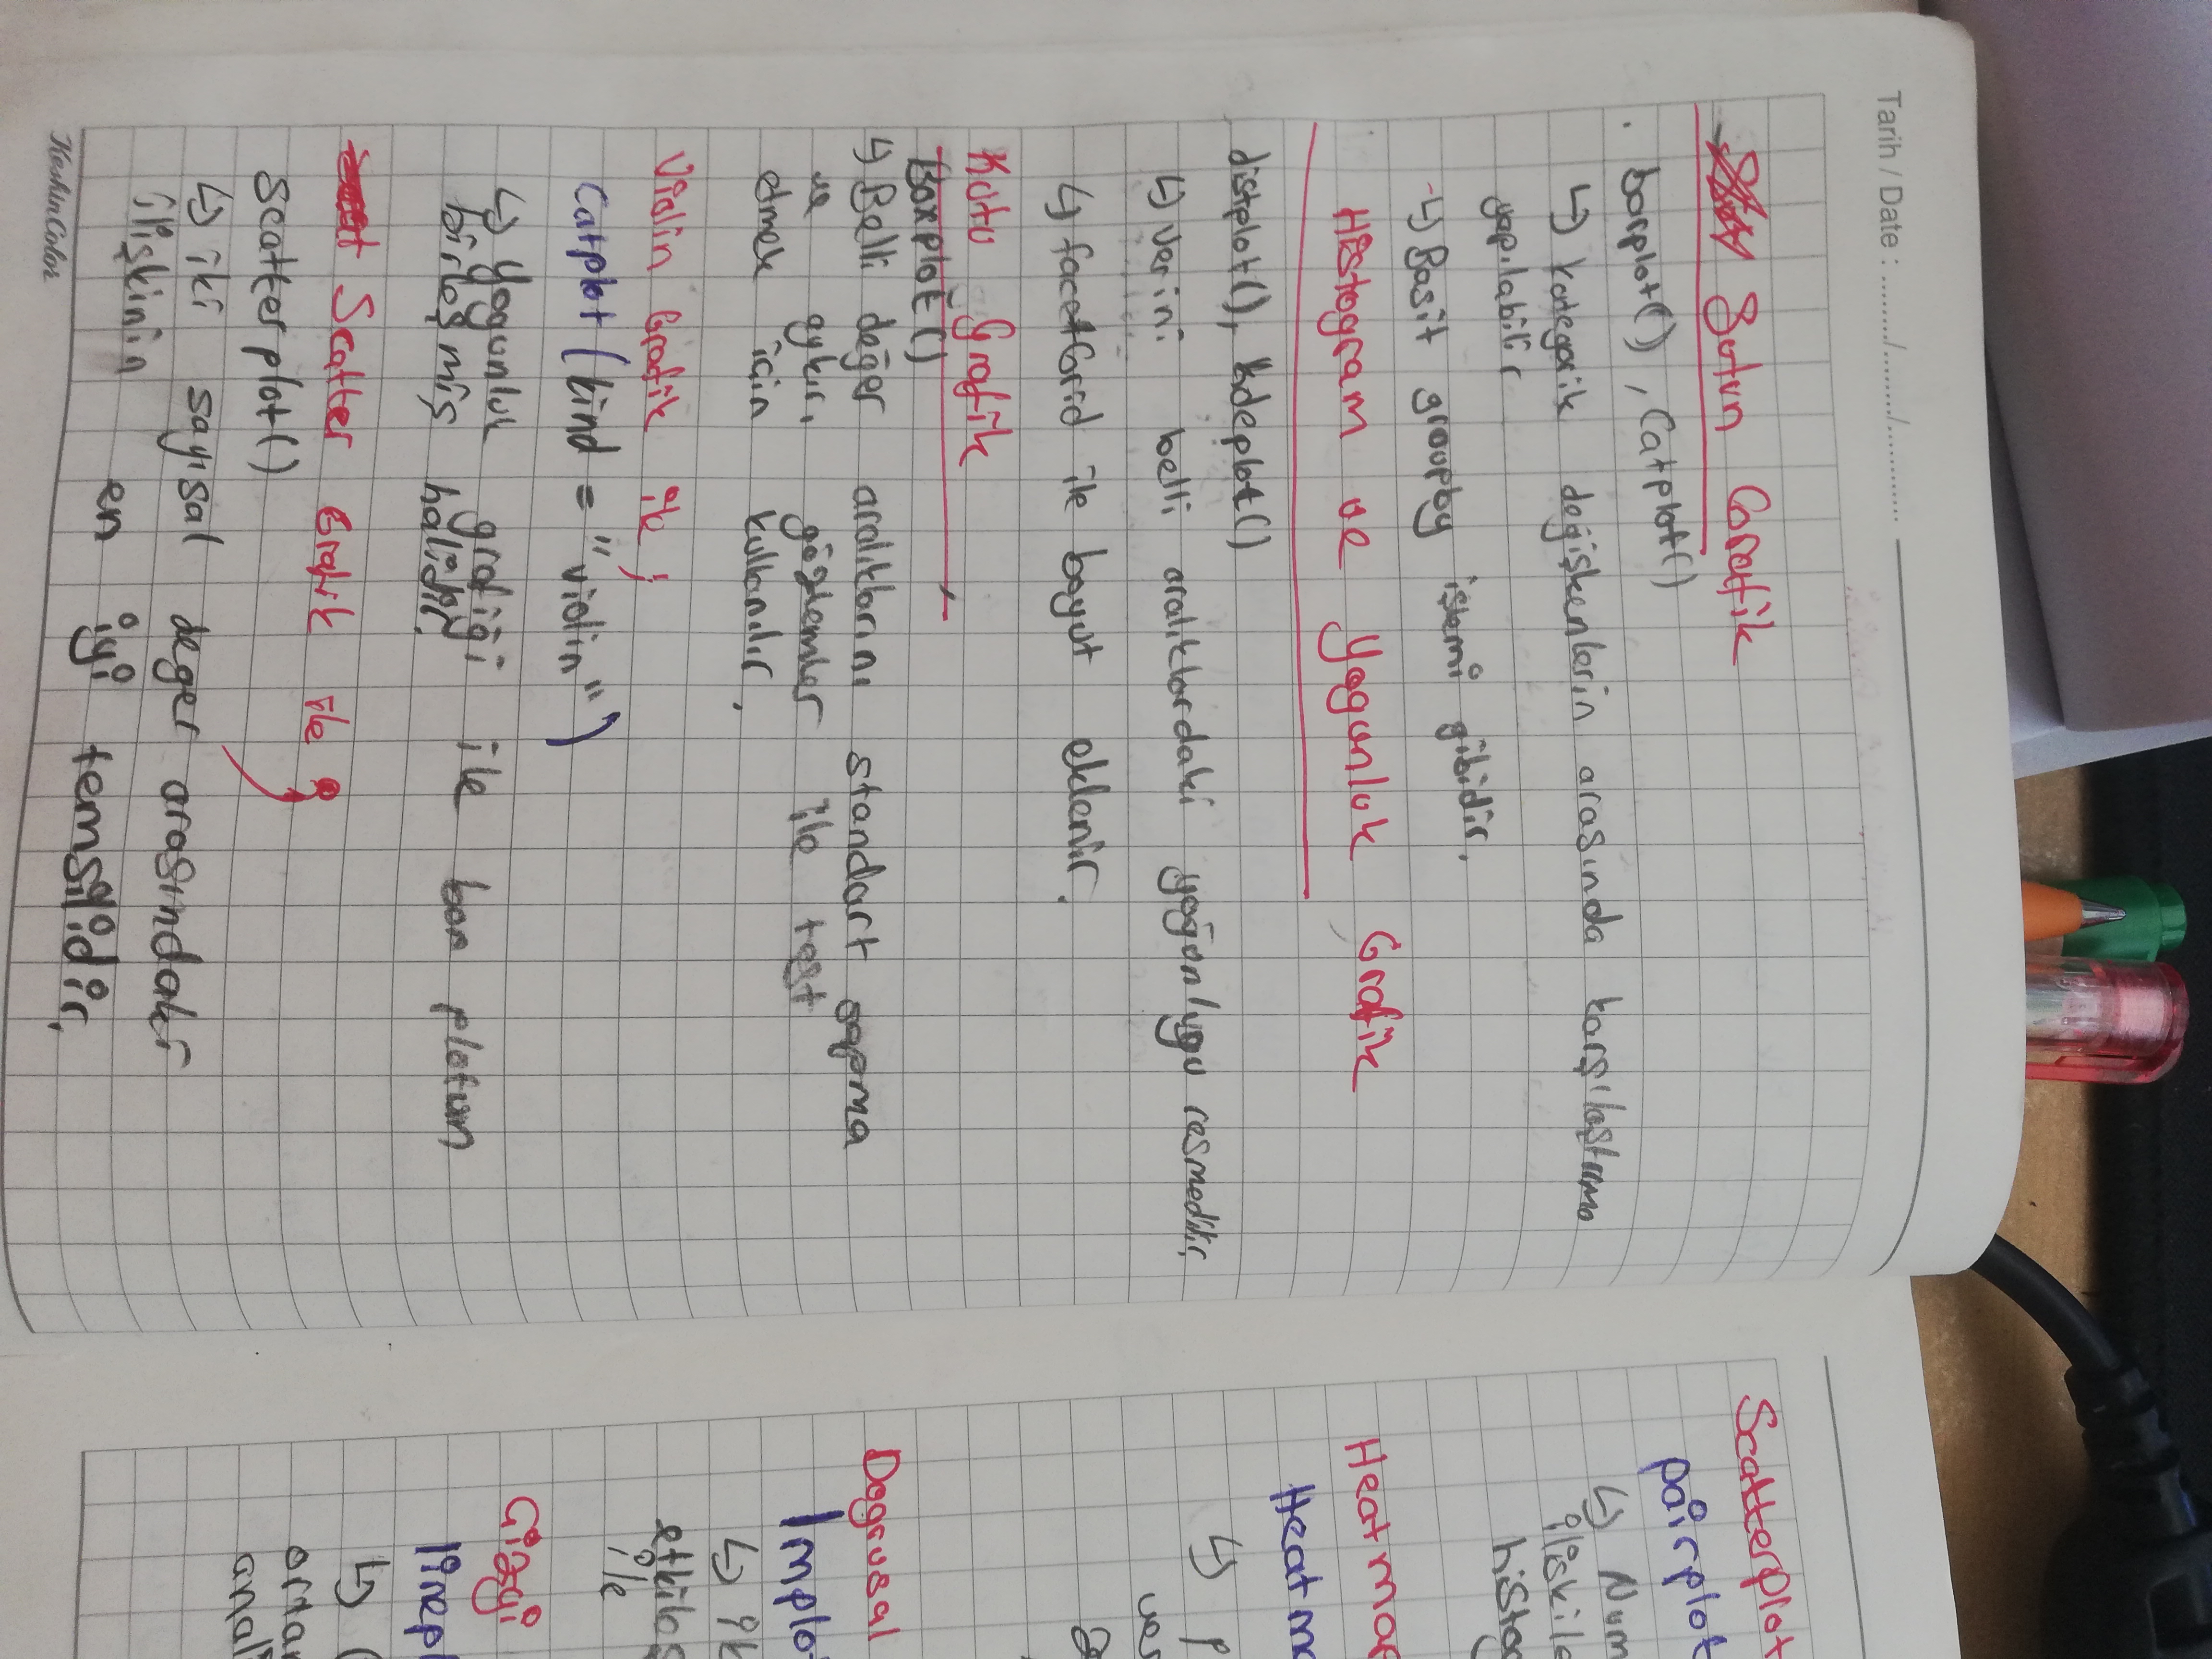 Tarih / Date : ......../......../............
Sutun Grafik
. barplot() , Catplot()
↳ kategorik değişkenlerin arasında karşılaştırma
yapılabilir
↳ Basit groupby işlemi gibidir.
Histogram ve Yogunluk Grafik
distplot(), kdeplot()
↳ verini belli aralıklardaki yoğunlugu resmedilir.
↳ facetGrid ile boyut eklenir.
Kutu Grafik
Boxplot()
↳ Belli değer aralıklarını standart sapma
ve aykırı gözlemler ile test
etmek için kullanılır.
Violin Grafik ile ;
Catplot (kind = "violin")
↳ Yogunluk grafiği ile box plotun
birleşmiş halidir.
Scatter Grafik ile ;
scatterplot()
↳ iki sayısal deger arasındaki
ilişkinin en iyi temsilidir.
KeskinColor
Scatterplot
pairplot
↳ Num
ilişkile
histog
Heatmap
Heatma
↳ p
ver
Dogrusal
lmplot
↳ ik
etkileş
ile
Çizgi
linepl
↳ (
ortam
anali